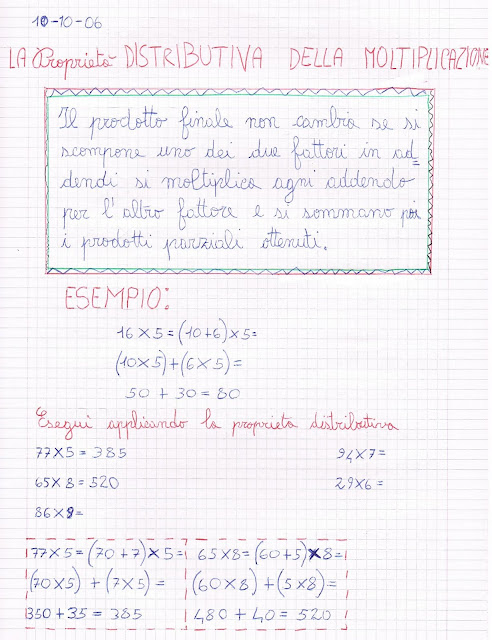 10-10-06
LA Proprietà DISTRIBUTIVA DELLA MOLTIPLICAZIONE
Il prodotto finale non cambia se si
scompone uno dei due fattori in ad=
dendi si moltiplica agni addendo
per l'altro fattore e si sommano poi
i prodotti parziali ottenuti.
ESEMPIO:
16×5=(10+6)×5=
(10×5)+(6×5)=
50+30=80
Esegui applicando la proprietà distributiva
77×5=385 94×7=
65×8=520 29×6=
86×9=
77×5=(70+7)×5= 65×8=(60+5)×8=
(70×5)+(7×5)= (60×8)+(5×8)=
350+35=385 480+40=520